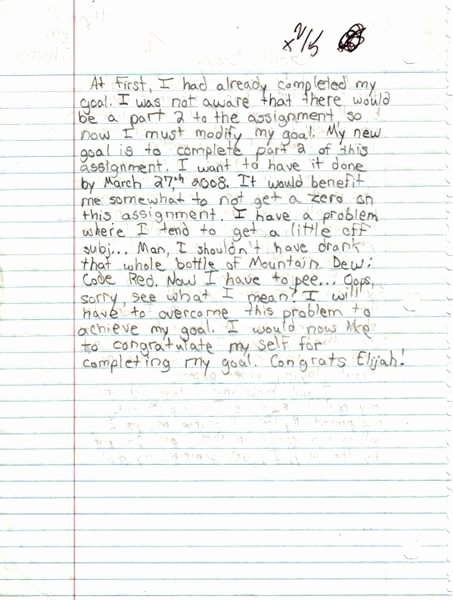 At first, I had already completed my
goal. I was not aware that there would
be a part 2 to the assignment, so
now I must modify my goal. My new
goal is to complete part 2 of this
assignment. I want to have it done
by March 27th 2008. It would benefit
me somewhat to not get a zero on
this assignment. I have a problem
where I tend to get a little off
subj... Man, I shouldn't have drank
that whole bottle of Mountain Dew:
Code Red. Now I have to pee... Oops,
sorry, see what I mean? I will
have to overcome this problem to
achieve my goal. I would now like
to congratulate my self for
completing my goal. Congrats Elijah!